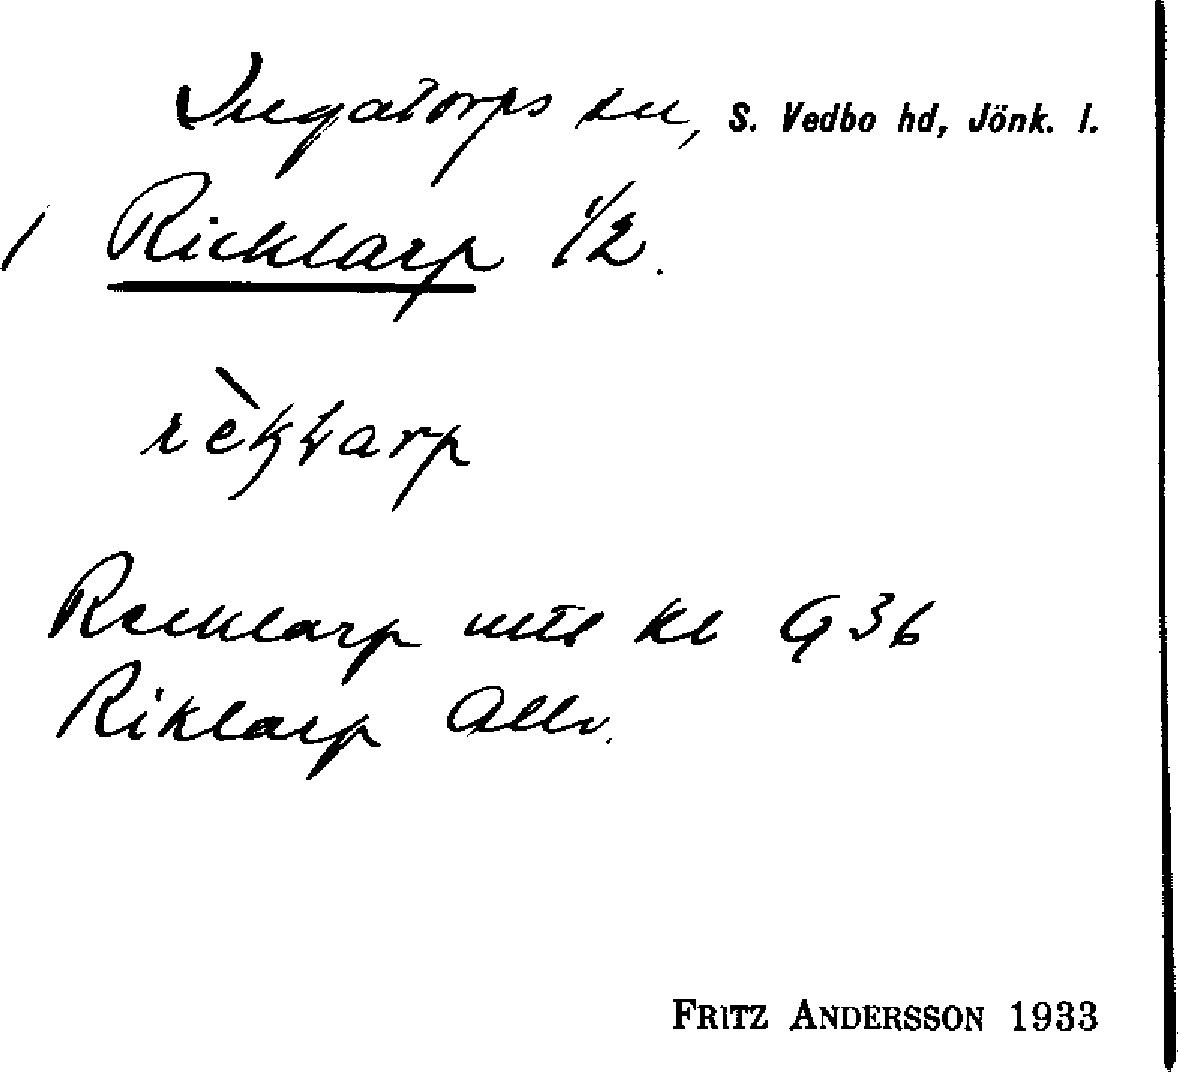 Ingatorps sn, S. Vedbo hd, Jönk. l.
1 Ricklarp 1/2.
Recklarp mtl Kl G36
Riklarp Allv.
FRITZ ANDERSSON 1933